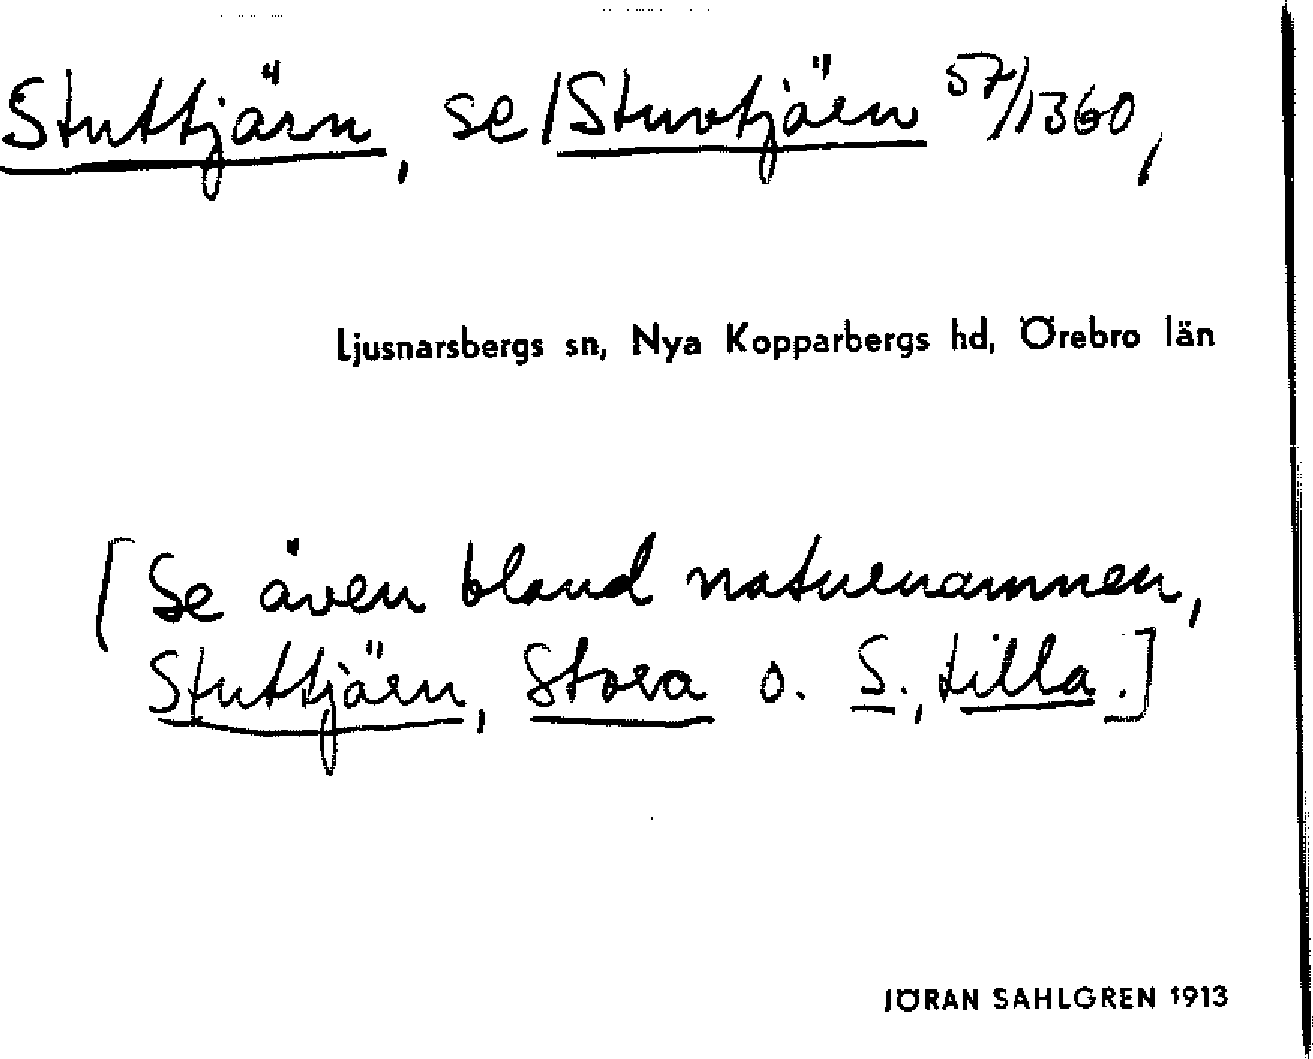 Stuttjärn, se /Sturtjärn 57/1360,
Ljusnarsbergs sn, Nya Kopparbergs hd, Örebro län
[Se även bland naturnamnen,
Stuttjärn, Stora o. S., Lilla.]
JÖRAN SAHLGREN 1913